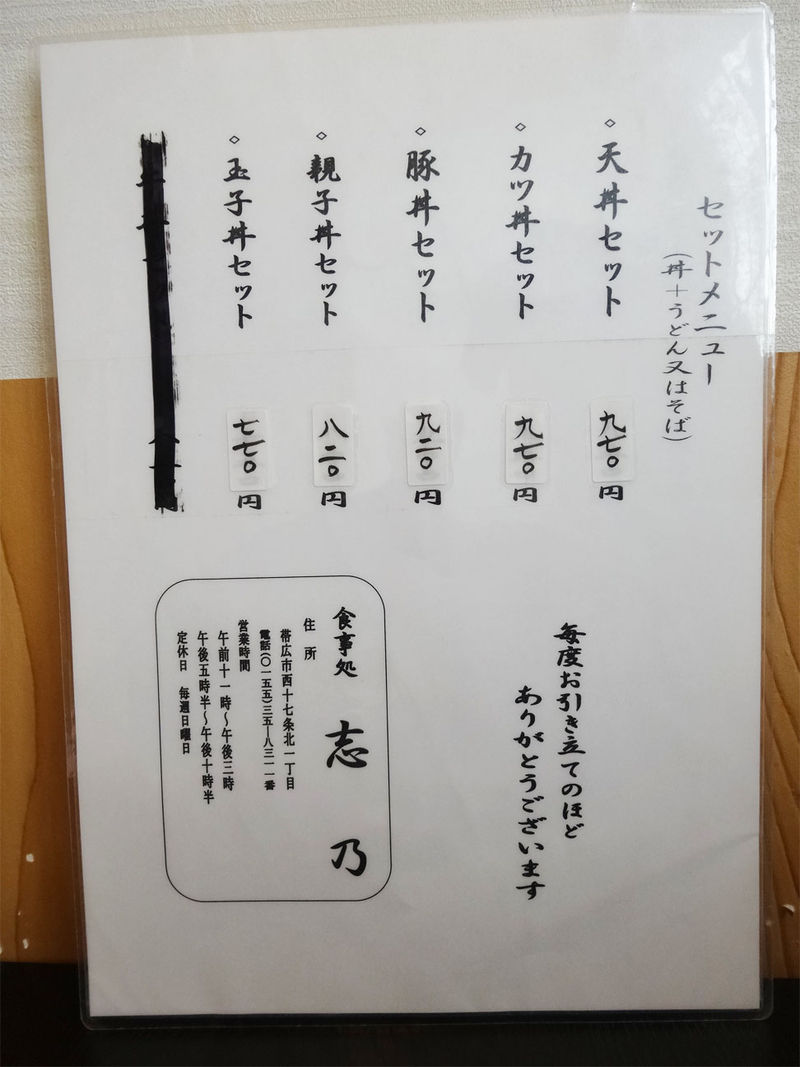 セットメニュー
(丼+うどん又はそば)
◇天丼セット 九七〇円
◇カツ丼セット 九七〇円
◇豚丼セット 九二〇円
◇親子丼セット 八二〇円
◇玉子丼セット 七七〇円
毎度お引き立てのほど
ありがとうございます
食事処 志乃
住所
帯広市西十七条北一丁目
電話(〇一五五)三五―八三一一番
営業時間
午前十一時〜午後三時
午後五時半〜午後十時半
定休日 毎週日曜日